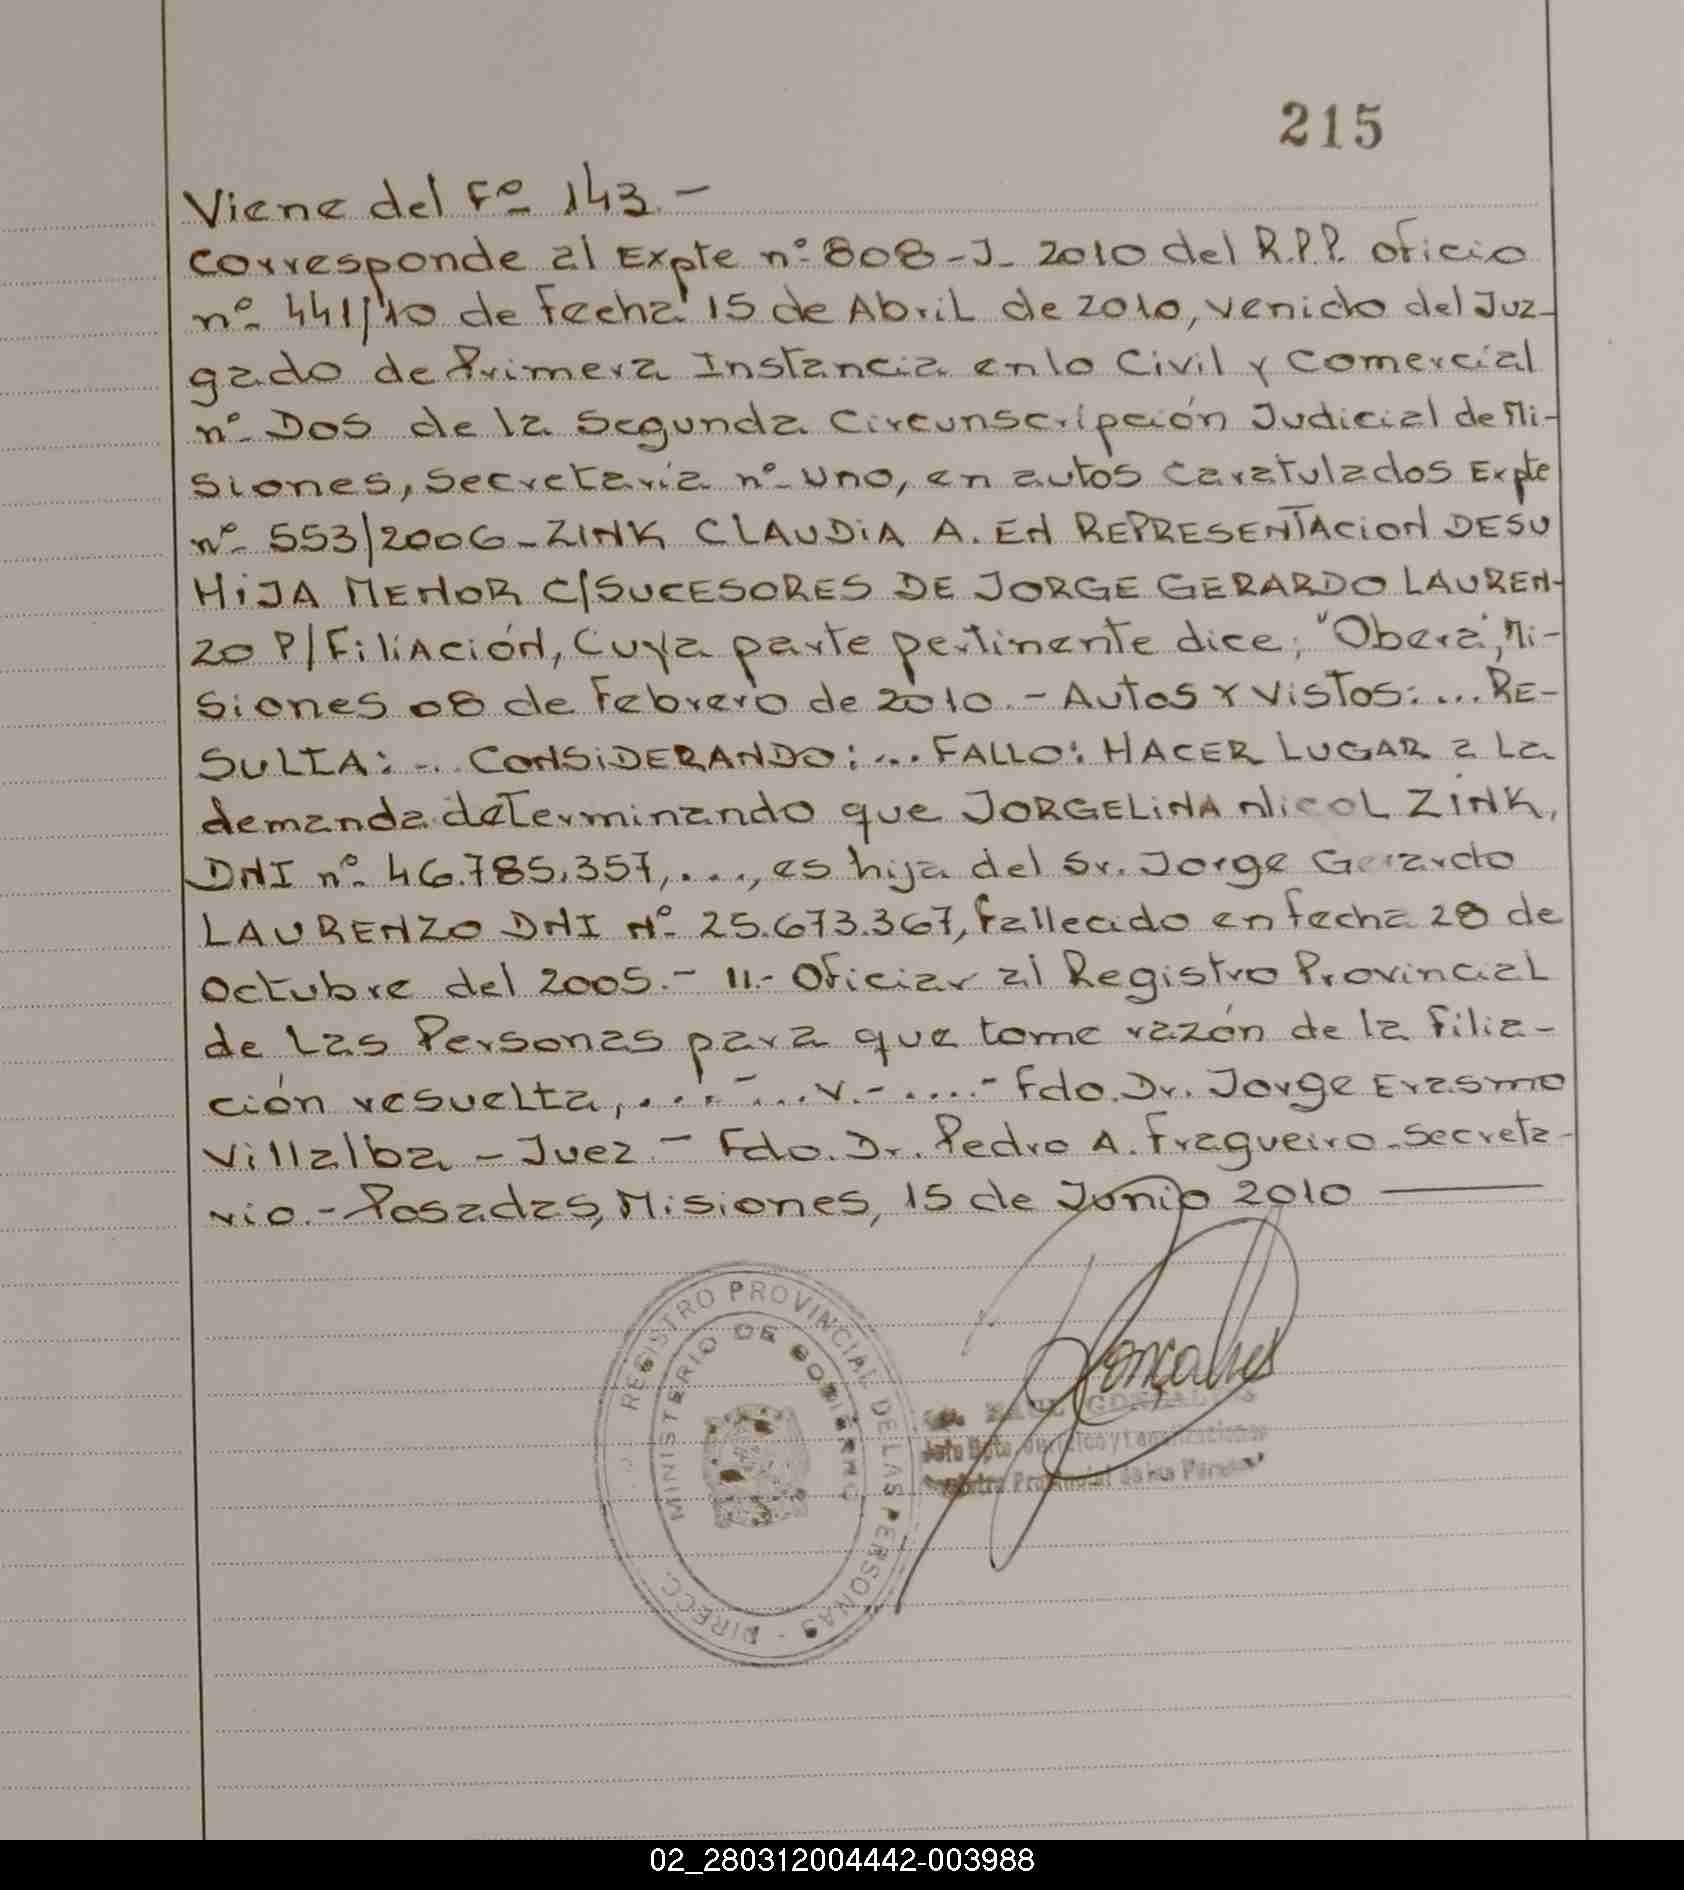 215
Viene del Fº 143.-
Corresponde al Expte nº 808-J- 2010 del R.P.P. oficio
nº 441/10 de Fecha 15 de Abril de 2010, venido del Juz-
gado de Primera Instancia en lo Civil y Comercial
nº Dos de la Segunda Circunscripción Judicial de Mi-
siones, Secretaría nº uno, en autos Caratulados Expte
nº 553/2006-ZINK CLAUDIA A. EN REPRESENTACION DE SU
HIJA MENOR C/SUCESORES DE JORGE GERARDO LAUREN-
ZO P/FILIACIÓN, Cuya parte pertinente dice; "Obera, Mi-
siones 08 de Febrero de 2010.- Autos y vistos:... RE-
SULTA:... CONSIDERANDO:... FALLO: HACER LUGAR a La
demanda determinando que JORGELINA NICOL ZINK,
DNI nº 46.785.357,..., es hija del Sr. Jorge Gerardo
LAURENZO DNI Nº 25.673.367, Fallecido en fecha 28 de
Octubre del 2005.- II.- Oficiar al Registro Provincial
de Las Personas para que tome razón de la Filia-
ción resuelta,...-...V.-....- Fdo. Dr. Jorge Erasmo
Villalba - Juez - Fdo. Dr. Pedro A. Fragueiro-Secreta-
rio.- Posadas, Misiones, 15 de Junio 2010
REGISTRO PROVINCIAL DE LAS PERSONAS - DIRECC.
MINISTERIO DE GOBIERNO
Gonçalves
Registro Provincial de las Personas
02_280312004442-003988